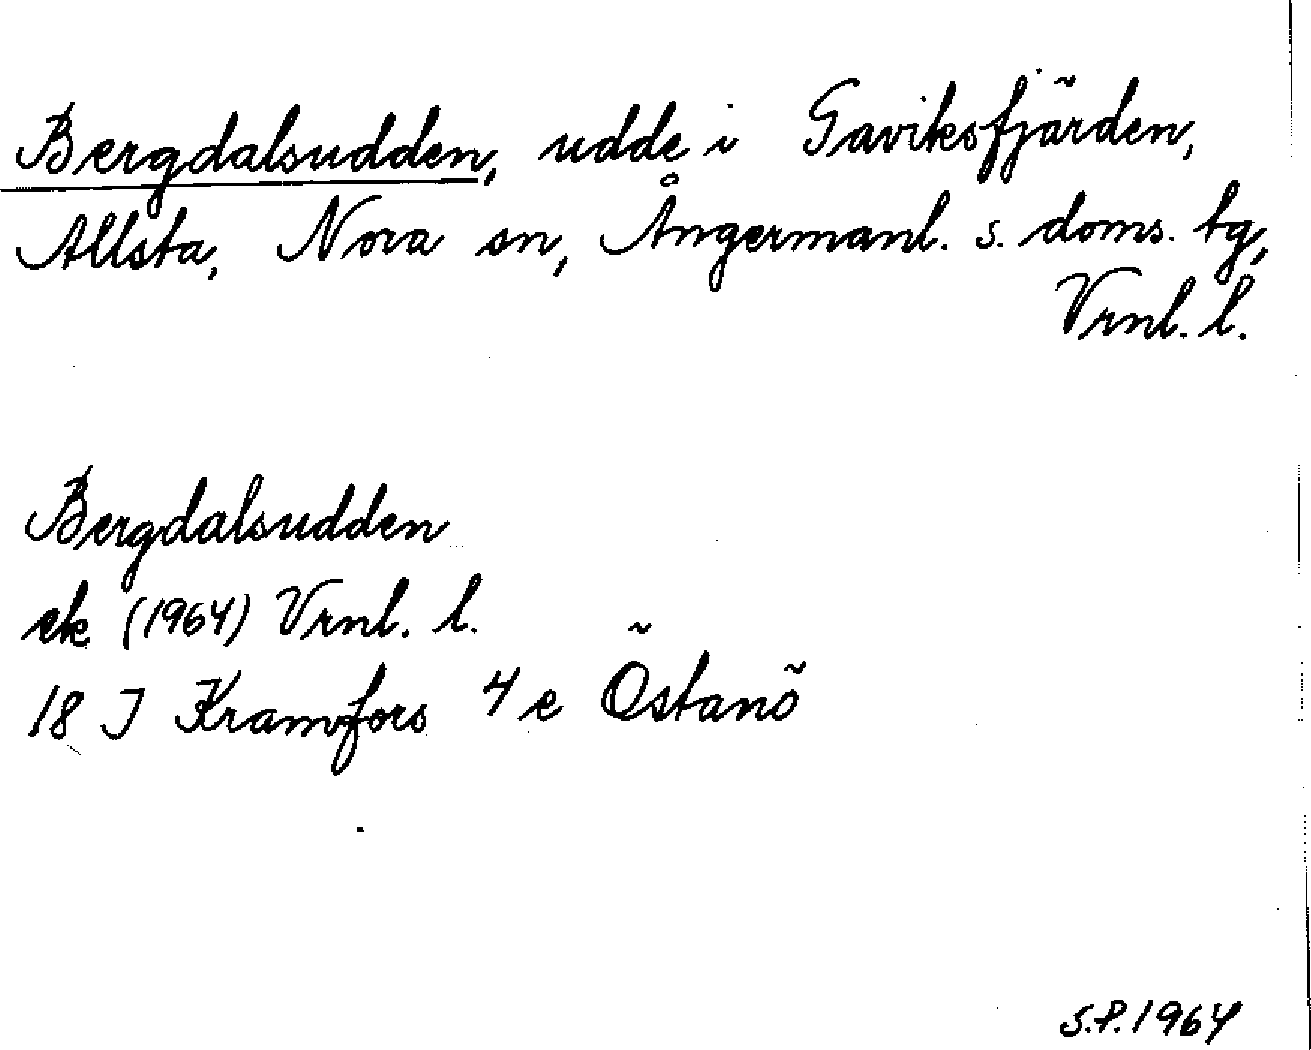 Bergdalsudden, udde i Gaviksfjärden,
Allsta, Nora sn, Ångermanl. s. doms. tg,
Vrnl. l.
Bergdalsudden
ek (1964) Vrnl. l.
18 J Kramfors 4 e Östanö
S.P. 1964